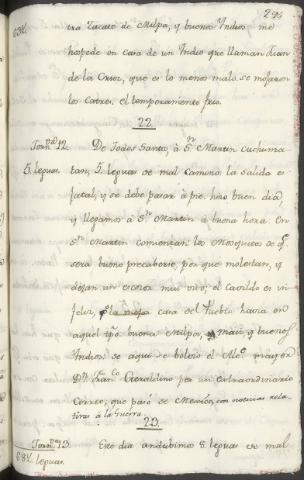 295
63½.
tra Zacate de Milpa, y buenos Indios me
hospede en casa de un Indio que llaman Juan
de la Cruz, que es lo menos malo se mojaron
los Catres. el temporamento frio.
22.
Jorn.da 12.
5. leguas.
De Todos Santos, à S.n Martin Cuchuma
tan, 5. leguas de mal Camino la salida es
fatal, y se debe pasar à pie. hiso buen dia,
y llegamos à S.n Martin a buena hora. En
S.n Martin comienzan los Mosquetes de q.e
sera bueno precaberse, por que molestan, y
dejan un escozor mui vivo; el Cavildo es in
felix, casa del Pueblo havia en
aquel tpõ. buena Milpa, maiz, y buenos
Indios de aqui se bolvio el Alc.e mayor
D.n Fran.co Geraldino por un extraordinario
Correo, que pasó de Mexico, con noticias rela
tivas à la Guerra.
23.
Jorn.da 13.
68½. leguas.
Este dia andubimos 8. leguas de mal